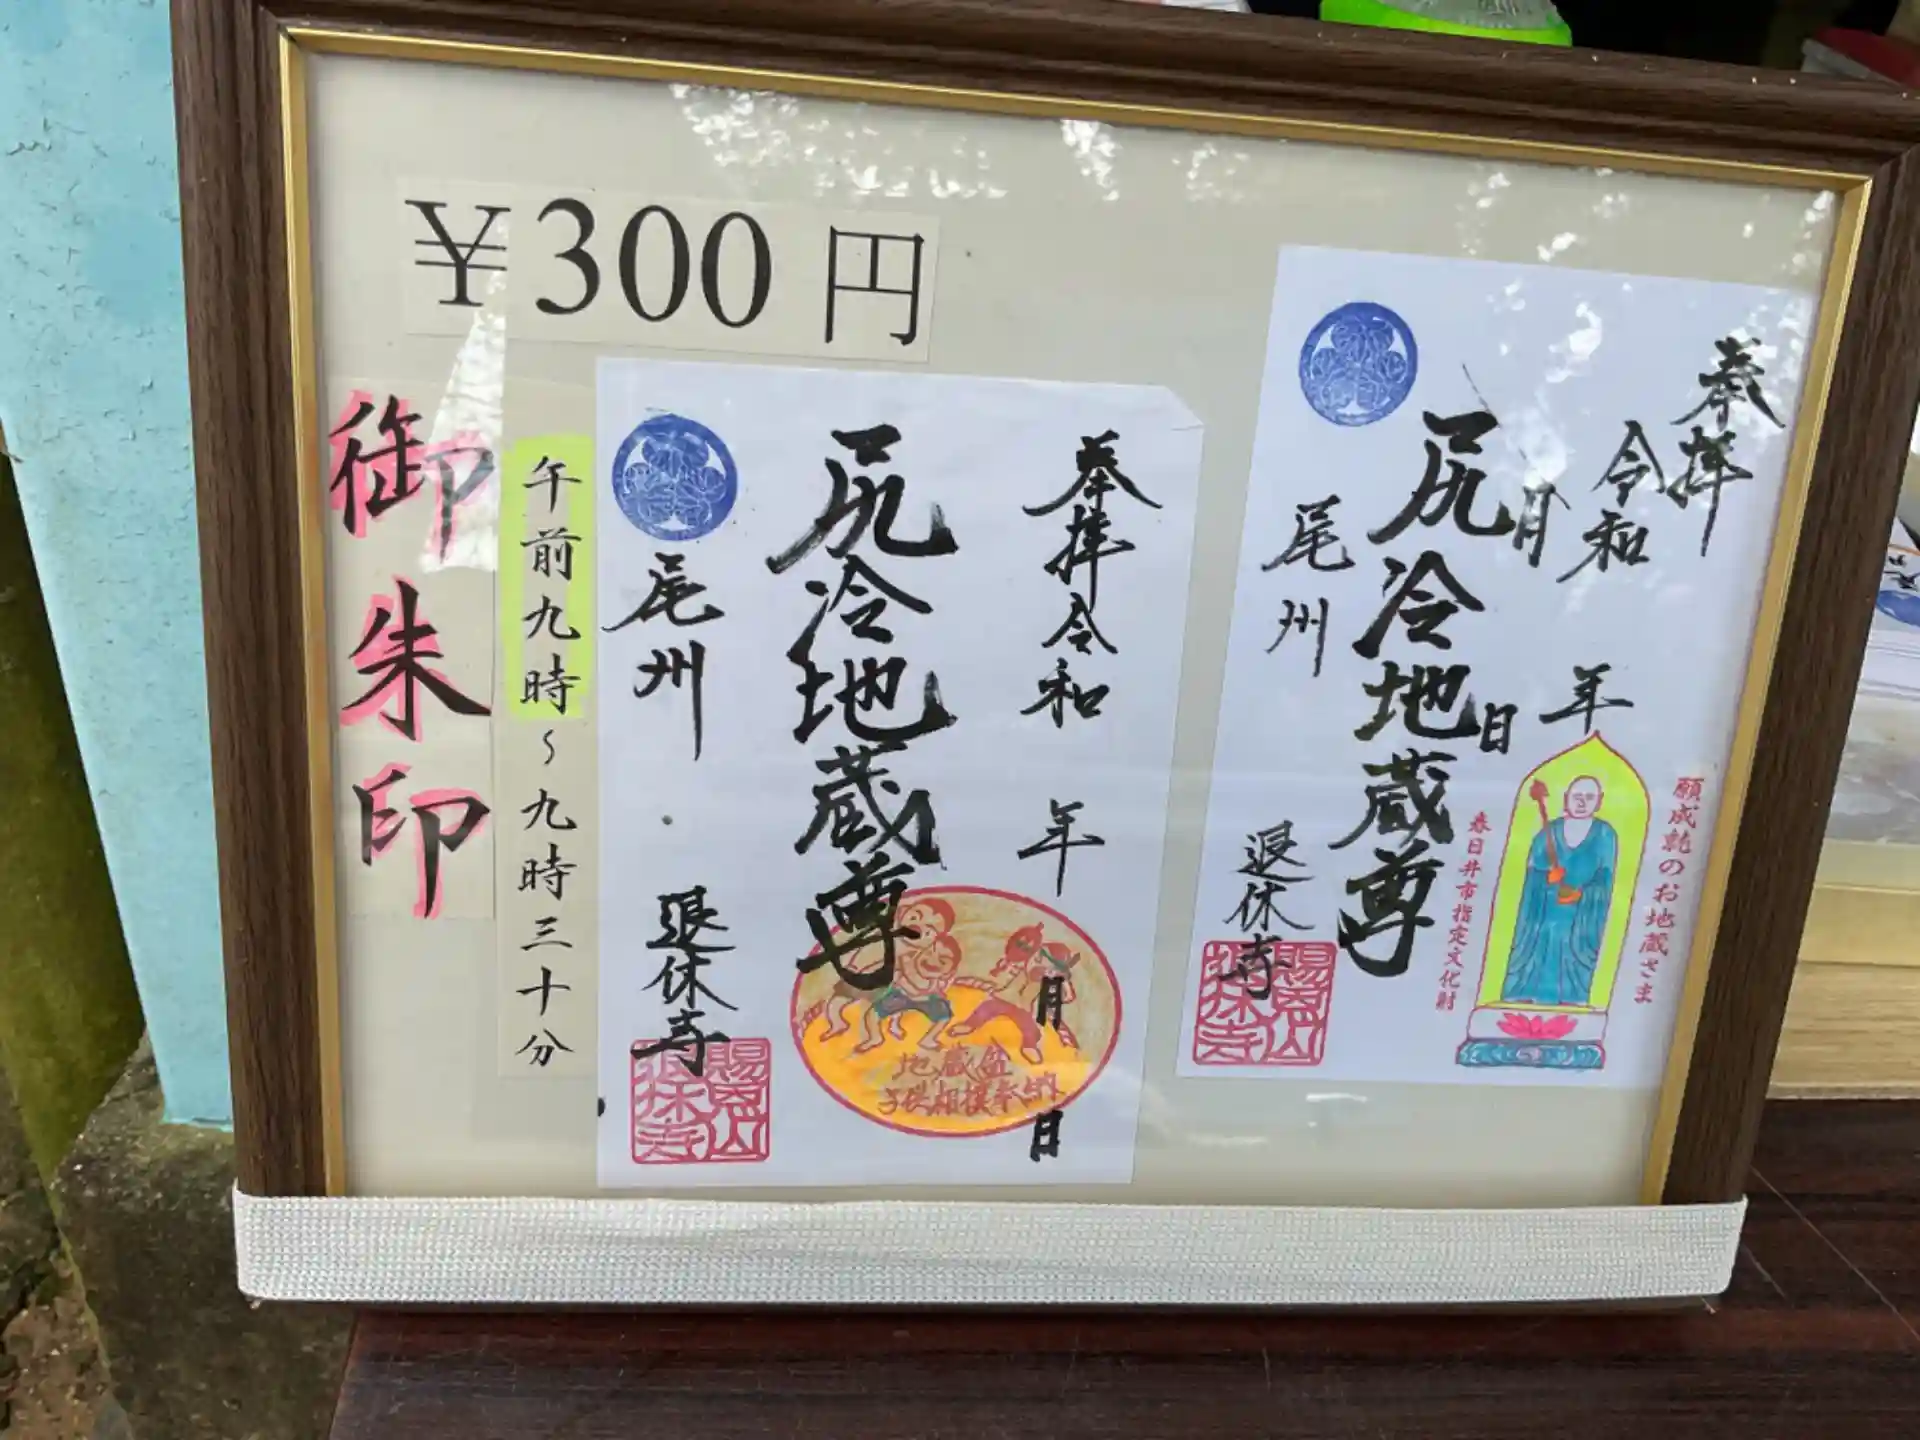 ￥300 円
御朱印
午前九時～九時三十分
奉拝 令和 年 月 日
尻冷地蔵尊
尾州 退休寺
賜恩山
退休寺
地蔵盆
子供相撲奉納
奉拝
令和 年
月 日
尻冷地蔵尊
尾州 退休寺
賜恩山
退休寺
願成就のお地蔵さま
春日井市指定文化財